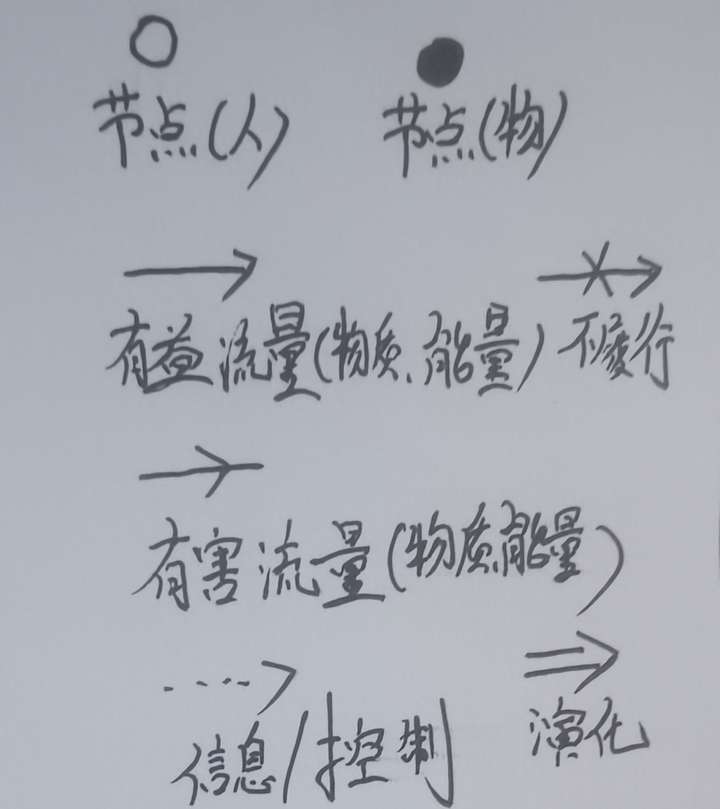 节点(人) 节点(物)
有益流量(物质、能量) 不履行
有害流量(物质、能量)
信息/控制 演化